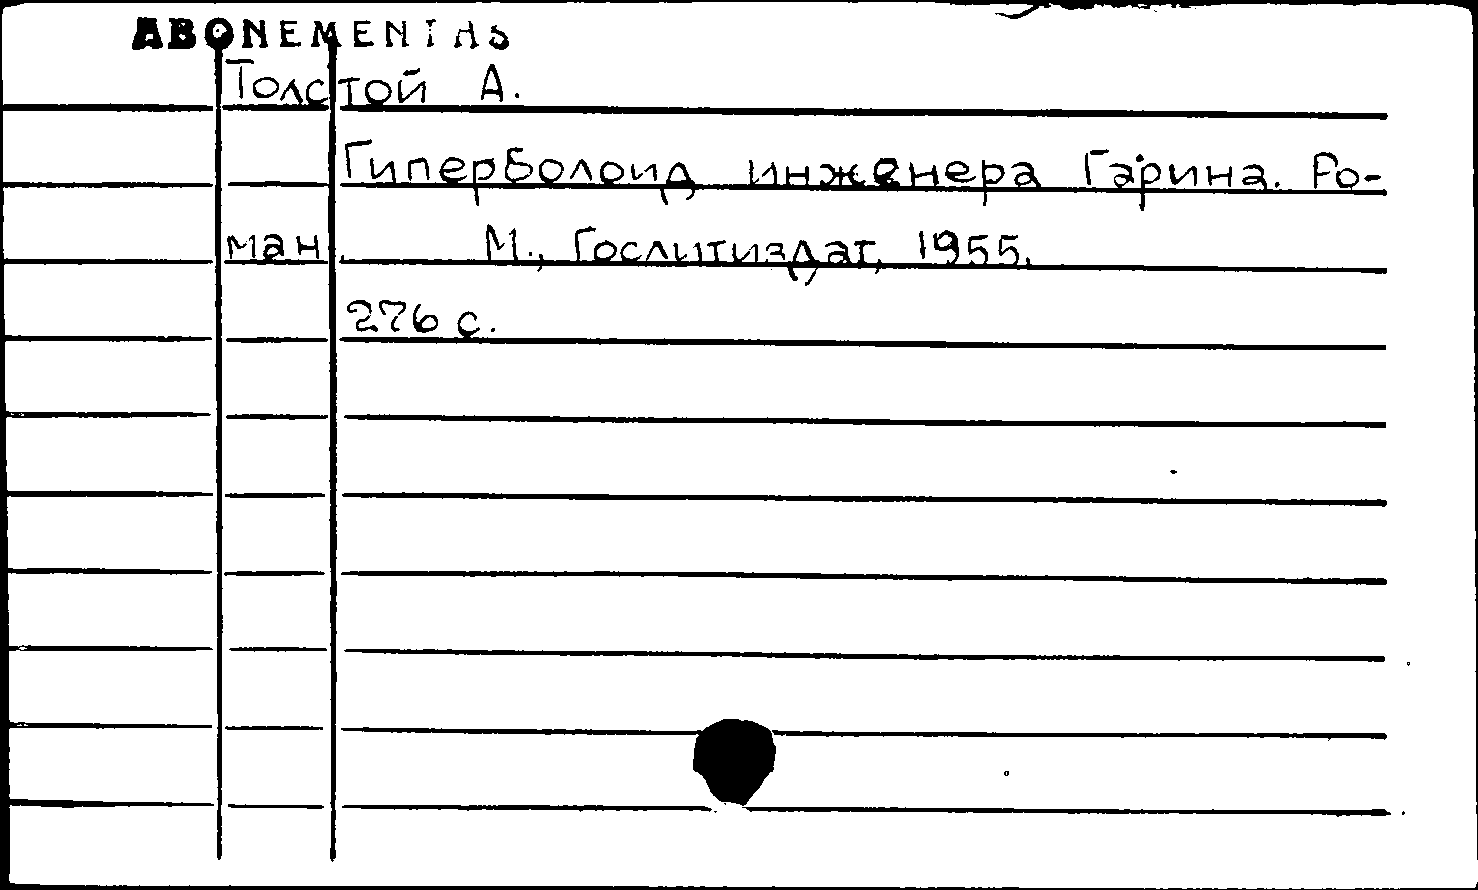 ABONEMENTAS
Толстой А.
Гиперболоид инженера Гарина. Ро-
ман. М., Гослитиздат, 1955.
276 с.